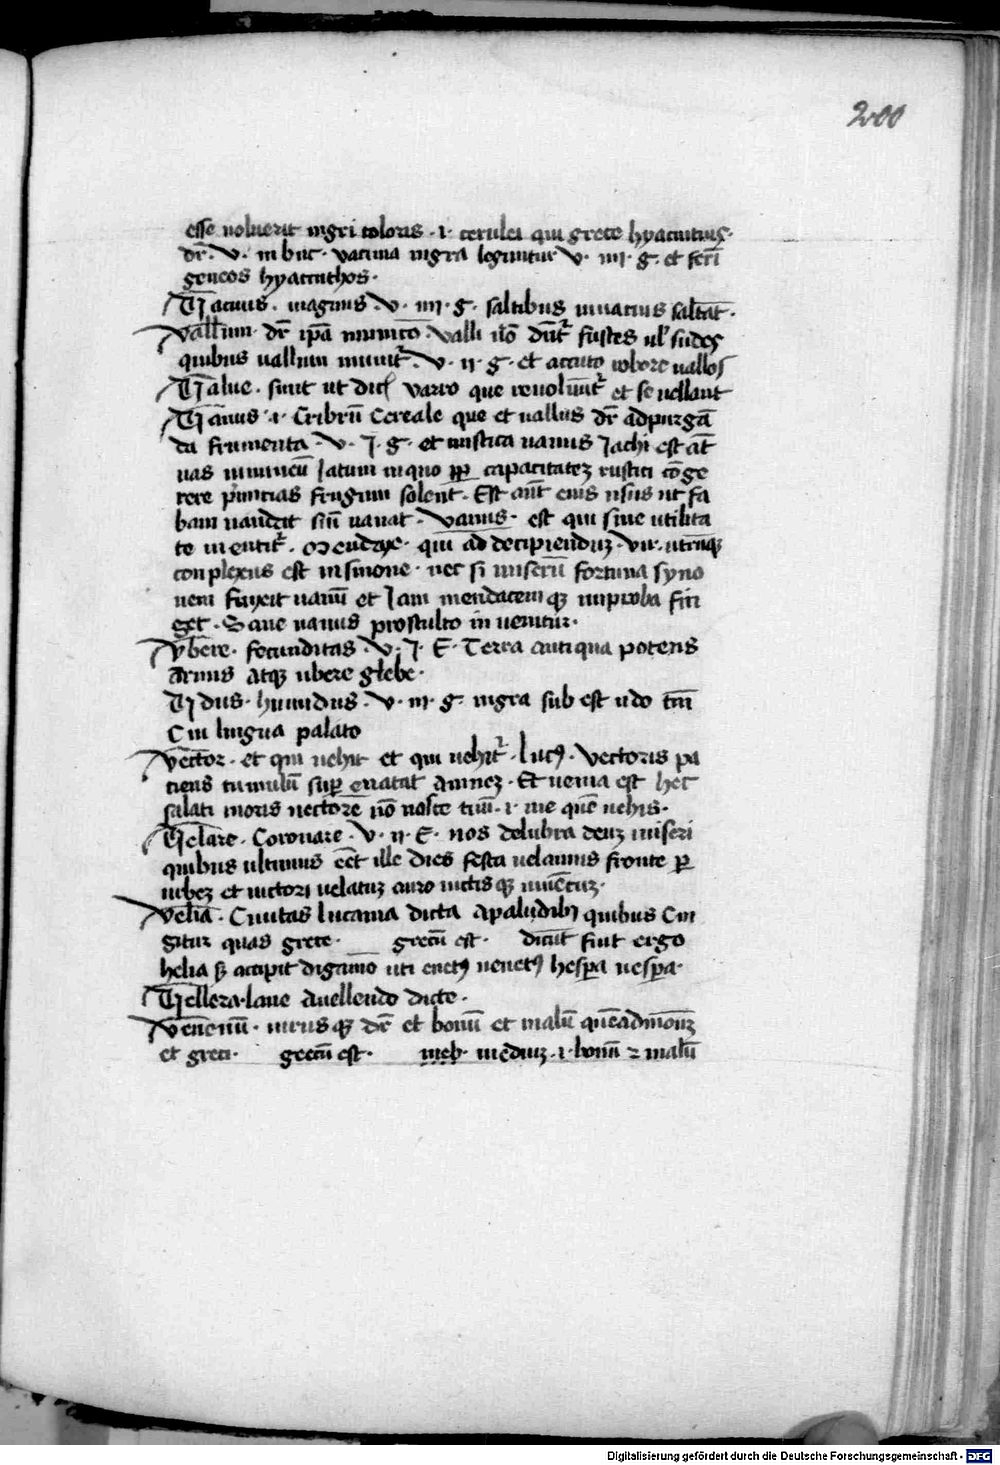 200
esse uoluerit nigri coloris · i · cerulei qui grece hyacintinꝰ·
dr̄ · v · in buc · vacinia nigra leguntur v · iiii · g · et ferrū
gineos hyacinthos ·
Vacuus · magnus · v · iiii · g · saltibus in uacuis saltāt ·
vallum · dr̄ ip̄a municō · valli u̅o dn̅t᷑ fustes ul' sudes
quibus uallum munit᷑ · v · ii · g · et accuto robore uallos
Value · sunt ut dic̄ varro que reuolūnt᷑ et se uellant
Vānus · i · Cribrū Cereale que et uallus dr̄ ad purgā
da frumenta · v · i · g · et mistica uanus Iachi est āt
uas uimineū latum in quo pp̄ capacitatez rustici cōge
rere primicias frugum solent · Est aūt eius usus ut fa
bam uandit siū uanat · Vanus · est qui sine utilita
te mentit᷑ · Mendax · qui ad decipienduz · vir · utrūqꝫ
conplexus est in sinone · nec si miserū fortuna syno
nem finxit uanū et Iam mendacem qꝫ improba fin
get · Sane uanus pro stulto in uenitur ·
vbere · fecunditas · v · i · E · Terra antiqua potens
armis atqꝫ ubere glebe ·
Vdus · humidus · v · iii · g · nigra sub est udo tm̄
Cui lingua palato
vector · et qui uehit et qui uehit᷑ · lucꝰ · vectoris pa
tiens tumidū sup̄ enatat amnez · Et uenia est hec
salati moris uectorē nō nosce tuū · i · me quē uehis ·
Velare · Coronare · v · ii · E · nos delubra deuz miseri
quibus ultimus eēt ille dies festa uelamus fronte p̄
urbez et uictori uelatuz auro uictis qꝫ iuuēcuz ·
velia · Ciuitas lucania dicta apaludibꝫ quibus Cin
gitur quas grece · grecū est · dicūt fiut ergo
helia sꝫ accipit digamō uti enetꝰ uenetꝰ hesp̄a uesp̄a ·
Vellera · lane auellendo dicte ·
venenū · uirus qꝫ dr̄ et bonū et malū quēadmōꝫ
et greci · grecū est · meb · mediuz · i · bonū ⁊ malū
Digitalisierung gefördert durch die Deutsche Forschungsgemeinschaft - DFG